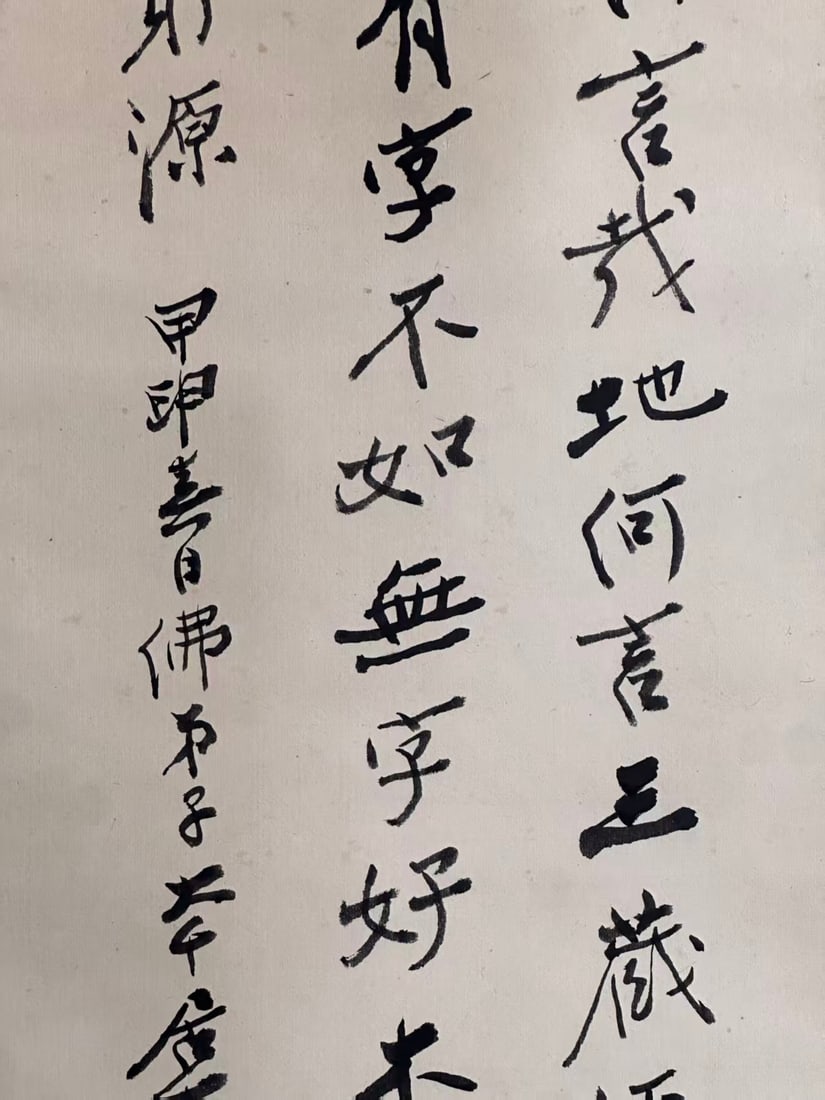 言哉地何言三藏
有字不如無字好
源 甲申喜日佛弟子